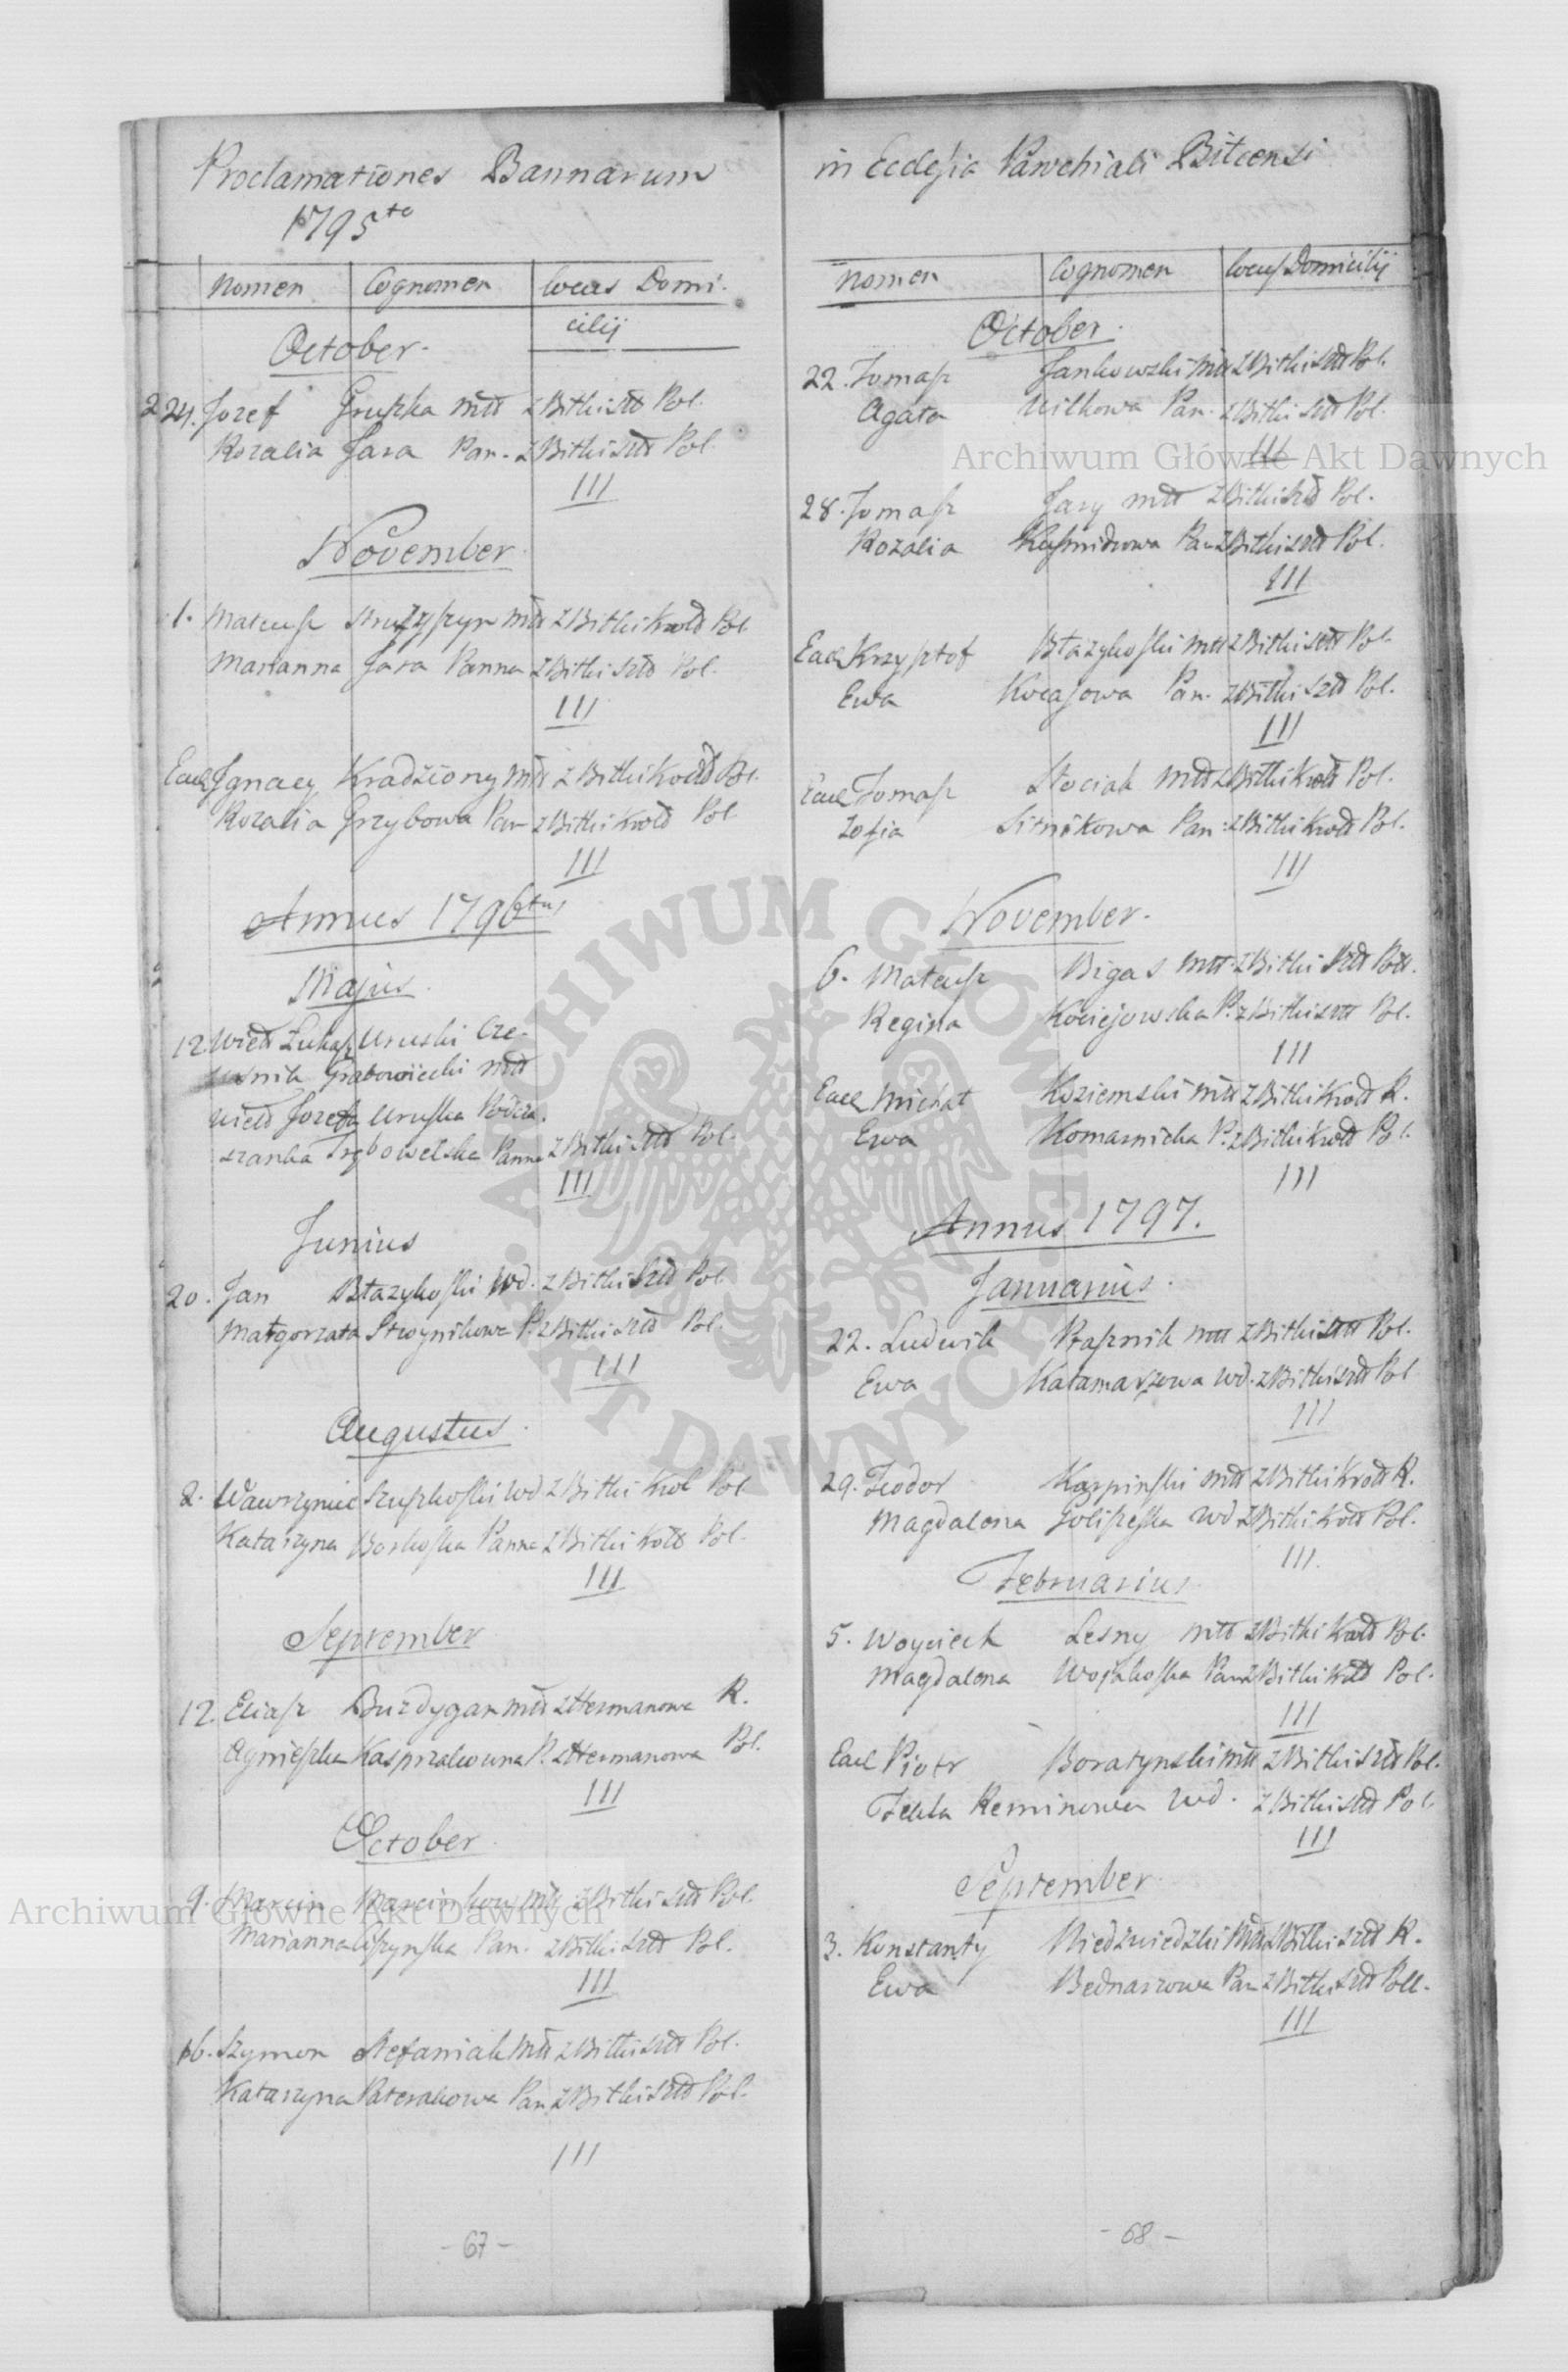 Proclamationes Bannarum
1795to
Nomen Cognomen Locus Domi-
cilij
October.
24. Jozef Gruszka młd z Bitki szld Pol.
Rozalia Jara Pan. z Bitki szld Pol.
III
November
1. Mateusz młd z Bitki Krold Pol.
Marianna Jara Panna z Bitki szld Pol.
III
Ead Jgnacy Kradziony młd z Bitki Krold Pol.
Rozalia Grzybowa Pan z Bitki Krold Pol
III
Annus 1796tus
Majus
12. Wied Łukasz Uruski Cze-
snik Grabowiecki młd
Wied Jozefa Uruska Podcza-
szanka Panna z Bitki szld Pol.
III
Junius
20. Jan Błazykoski Wd. z Bitki szld Pol.
Małgorzata Stroynikowa P. z Bitki szld Pol.
III
Augustus.
2. Wawrzyniec Szuszkoski Wd z Bitki Krol Pol
Katarzyna Borkoska Panna z Bitki Krold Pol.
III
September
12. Eliasz Buzdygan młd z Hermanowa R.
Agnieszka Kasprzakowna P. z Hermanowa Pol.
III
October.
9. Marcin Marcinkow młd z Bitki szld Pol.
Marianna Pan. z Bitki szld Pol.
III
16. Szymon Stefaniak młd z Bitki szld Pol.
Katarzyna Paterakowa Pan z Bitki szld Pol.
III
- 67 -
in Ecclesia Parochiali Bitcensi
Nomen Cognomen Locus Domicilij
October.
22. Tomasz Jankowski młd z Bitki szld Pol.
Agata Wilkowa Pan. z Bitki szld Pol.
III
28. Tomasz Jary młd z Bitki szld Pol.
Rozalia Kusznidrowa Pan z Bitki szld Pol.
III
Ead Krzysztof Błazykoski młd z Bitki szld Pol.
Ewa Kocajowa Pan. z Bitki szld Pol.
III
Ead Tomasz Stociak młd z Bitki Krold Pol.
Zofia Sitnikowa Pan: z Bitki Krold Pol.
III
November.
6. Mateusz Bigas młd z Bitki szld Poll.
Regina Kociejowska P. z Bitki szld Pol.
III
Ead Michał Koziemski młd z Bitki Krold R.
Ewa Komarnicka P. z Bitki Krold Pol.
III
Annus 1797.
Januarius.
22. Ludwik Ptasznik młd z Bitki szld Pol.
Ewa Katamarzowa Wd. z Bitki szld Pol
III
29. Teodor Karpinski młd z Bitki Krold R.
Magdalena Goliszeska Wd z Bitki Krold Pol.
III
Februarius
5. Woyciech Lesny młd z Bitki Krold Pol.
Magdalena Wojakoska Pan z Bitki Krold Pol.
III
Ead Piotr Boratynski młd z Bitki szld Pol.
Tekla Reminowa Wd. z Bitki szld Pol.
III
September.
3. Konstanty Niedzwiedzki młd z Bitki szld R.
Ewa Bednarzowa Pan z Bitki szld Poll.
III
- 68 -
Archiwum Główne Akt Dawnych
Archiwum Główne Akt Dawnych
ARCHIWUM GŁÓWNE AKT DAWNYCH